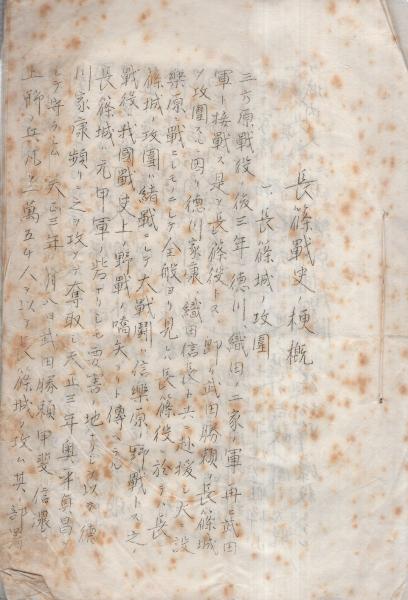 長篠戰史ノ梗概
一、長篠城ノ攻圍
三方原戰役ノ後三年德川、織田ノ二家ノ軍再ビ武田
軍ト接戰ス是ヲ長篠役トス即チ武田勝頼ノ長篠城
ヲ攻圍スルニ因リ德川家康、織田信長ト共ニ赴援シ大ニ設
樂原ニ戰ヒシモノニシテ全般ヨリ見レバ長篠役ニ於テハ長
篠城ノ攻圍ハ緒戰ニシテ大戰鬪ハ設樂原ノ野戰トス之ノ
戰役ハ我國戰史上ノ野戰ノ嚆矢ナリト傳ヘラル
長篠城ハ元甲軍ノ砦ナリシモ要害ノ地ナルヲ以テ德
川家康頻リニ之ヲ攻メテ奪取シ天正三年奥平貞昌ヲ
シテ守ラシム天正三年 月八日武田勝頼甲斐、信濃
上野ノ兵凡ソ二萬五千人ヲ以テ長篠城ヲ攻ム其ノ部署